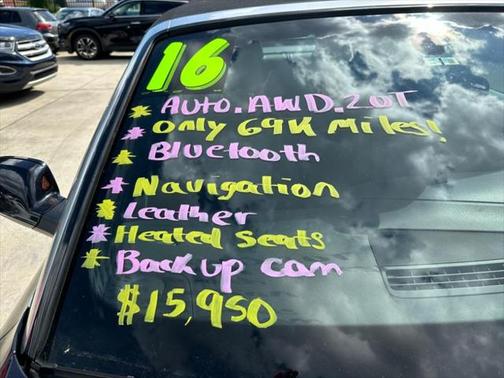 16
* Auto. AWD. 2.0T
* Only 69K Miles!
* Bluetooth
* Navigation
* Leather
* Heated Seats
* Back up cam
$15,950